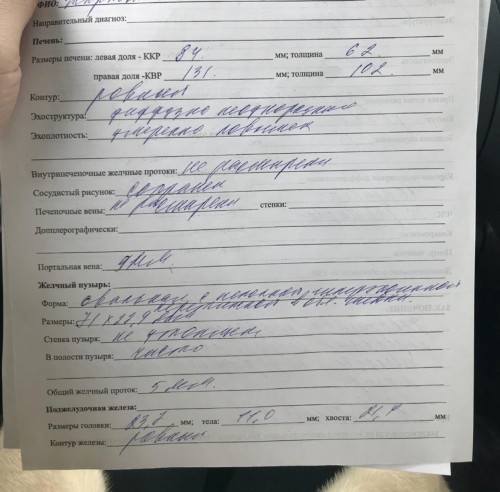 ФИО:
Направительный диагноз:
Печень:
Размеры печени: левая доля - ККР 84 мм; толщина 62 мм
правая доля -КВР 131 мм; толщина 102 мм
Контур: ровный
Эхоструктура: диффузно неоднородная
Эхоплотность: умеренно повышен
Внутрипеченочные желчные протоки: не расширены
Сосудистый рисунок: сохранен
Печеночные вены: не расширены стенки:
Допплерографически:
Портальная вена: 9мм
Желчный пузырь:
Форма: овальная, с неполной
перегородкой в обл. шейки.
Размеры: 71 х 22,9 мм
Стенка пузыря: не утолщена
В полости пузыря: чисто
Общий желчный проток: 5 мм.
Поджелудочная железа:
Размеры головки: 23,7 мм; тела: 11,0 мм; хвоста: мм
Контур железы: ровный